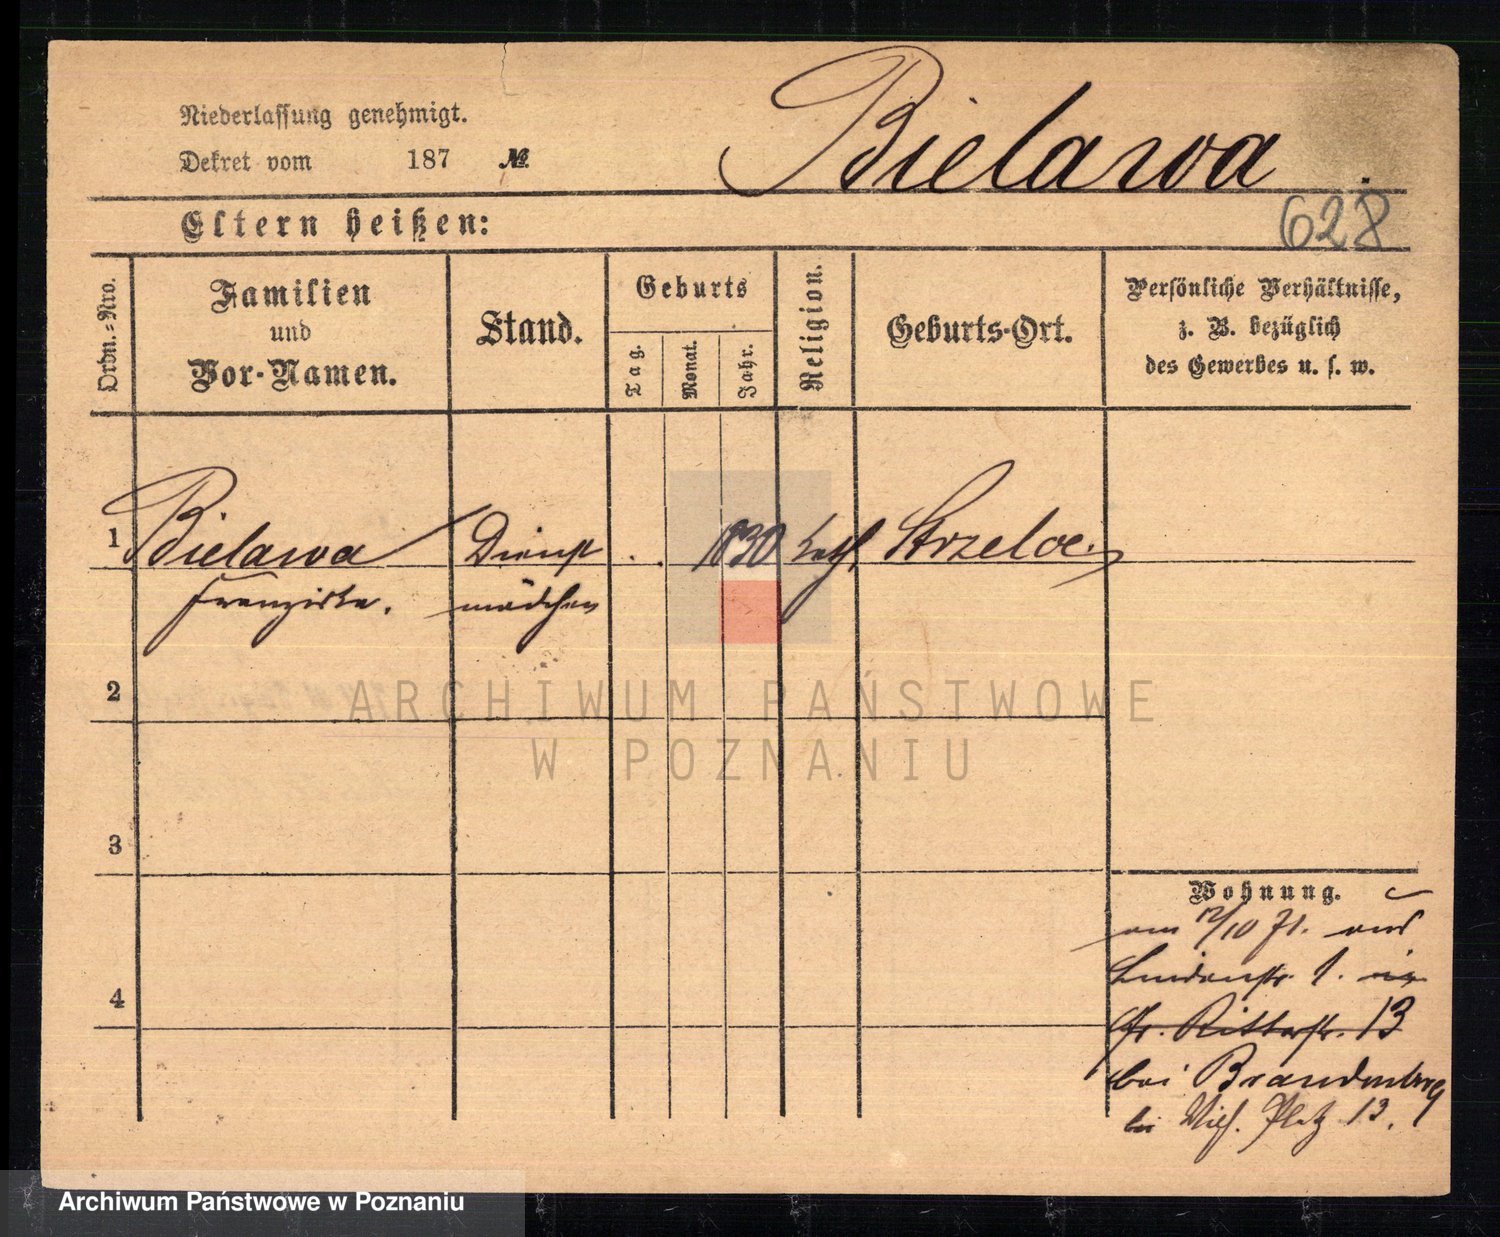 Niederlassung genehmigt.
Dekret vom 187 №
Bielawa
628
Eltern heißen:
Ordn.=Nro.
Familien
und
Vor-Namen.
Stand.
Geburts
Tag.
Monat.
Jahr.
Religion.
Geburts-Ort.
Persönliche Verhältnisse,
z. B. bezüglich
des Gewerbes u. s. w.
1 Bielawa Dienst . . 1830 kath. Strzelce
Franziska. mädchen
2
ARCHIWUM PAŃSTWOWE
W POZNANIU
3
Wohnung.
am 12/10 71. aus
Lindenstr. 1. in
4
Gr. Ritterstr. 13
bei Brandenburg
bei Wilh. Platz 13.
Archiwum Państwowe w Poznaniu